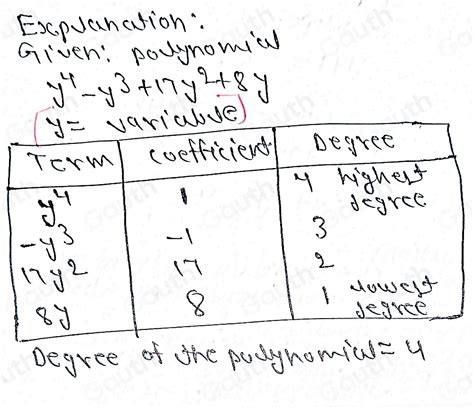 Explanation:
Given: polynomial
y⁴ - y³ + 17y² + 8y
y = variable
Term | Coefficient | Degree
y⁴ | 1 | 4 highest degree
-y³ | -1 | 3
17y² | 17 | 2
8y | 8 | 1 lowest degree
Degree of the polynomial = 4